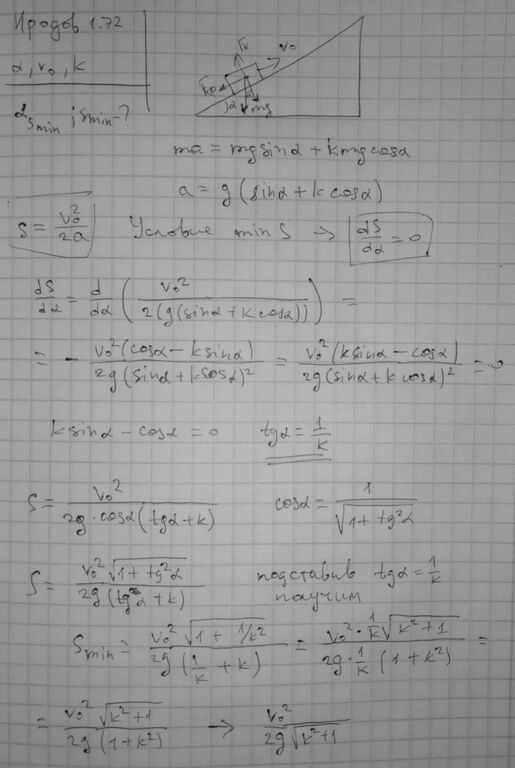 Иродов 1.72
α, v₀, k
α_{s min} ; s min - ?
F_N
v₀
F_тр
α
mg
ma = mg sinα + kmg cosα
a = g (sinα + k cosα)
S = v₀²/2a Условие min S → dS/dα = 0
dS/dα = d/dα (v₀²/2(g(sinα + k cosα))) =
= - v₀²(cosα - k sinα)/2g(sinα + k cosα)² = v₀²(k sinα - cosα)/2g(sinα + k cosα)² = 0
k sinα - cosα = 0 tgα = 1/k
S = v₀²/2g·cosα(tgα + k) cosα = 1/√(1 + tg²α)
S = v₀²√(1 + tg²α)/2g(tgα + k) подставив tgα = 1/k
получим
S min = v₀²√(1 + 1/k²)/2g(1/k + k) = v₀²·1/k√(k² + 1)/2g·1/k(1 + k²) =
= v₀²√(k² + 1)/2g(1 + k²) → v₀²/2g√(k² + 1)